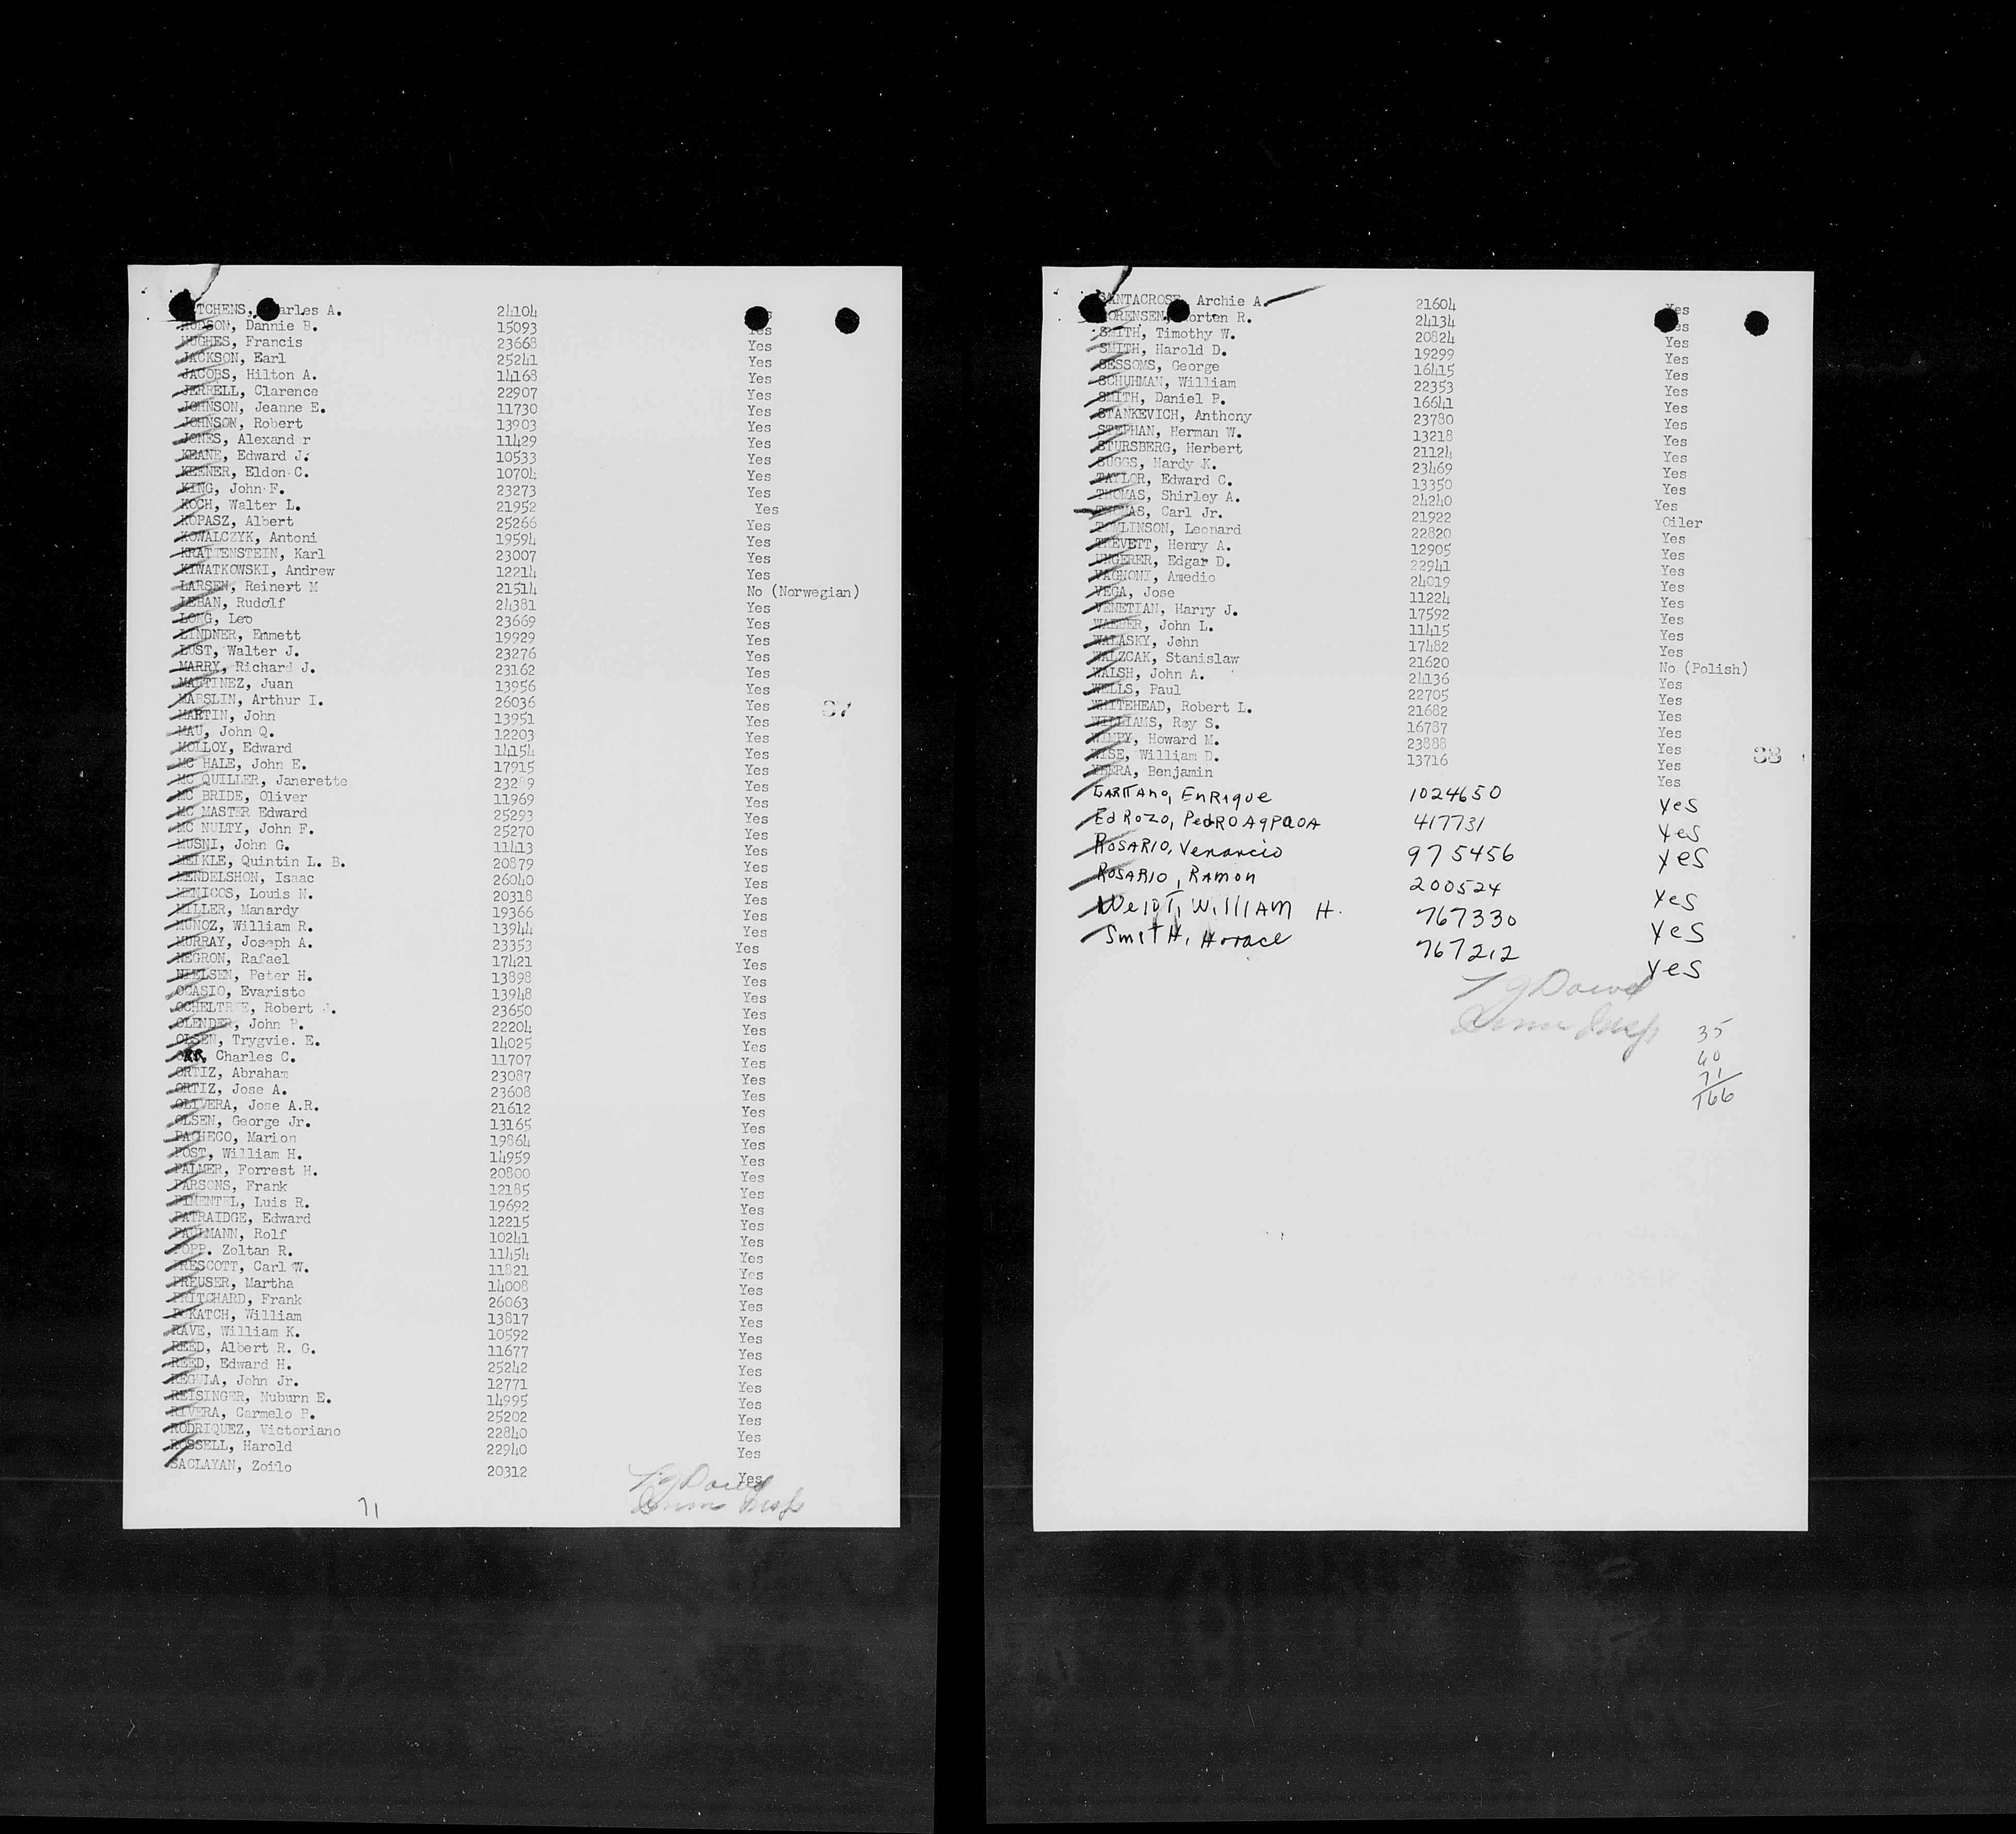 TCHENS, arles A. 24104
HUDSON, Dannie B. 15093 Yes
HUGHES, Francis 23668 Yes
JACKSON, Earl 25241 Yes
JACOBS, Hilton A. 14168 Yes
JERRELL, Clarence 22907 Yes
JOHNSON, Jeanne E. 11730 Yes
JOHNSON, Robert 13903 Yes
JONES, Alexander 11429 Yes
KEANE, Edward J. 10533 Yes
KEENER, Eldon C. 10704 Yes
KING, John F. 23273 Yes
KOCH, Walter L. 21952 Yes
KOPASZ, Albert 25266 Yes
KOWALCZYK, Antoni 19594 Yes
KRATTENSTEIN, Karl 23007 Yes
KIWATKOWSKI, Andrew 12214 Yes
LARSEN, Reinert M 21514 No (Norwegian)
LEBAN, Rudolf 24381 Yes
LONG, Leo 23669 Yes
LINDNER, Emmett 19929 Yes
LUST, Walter J. 23276 Yes
MARRY, Richard J. 23162 Yes
MARTINEZ, Juan 13956 Yes
MARSLIN, Arthur I. 26036 Yes
37
MARTIN, John 13951 Yes
MAU, John Q. 12203 Yes
MOLLOY, Edward 14154 Yes
MC HALE, John E. 17915 Yes
MC QUILLER, Janerette Yes
MC BRIDE, Oliver 11969 Yes
MC MASTER Edward 25293 Yes
MC NULTY, John F. 25270 Yes
MUSNI, John G. 11413 Yes
MEIKLE, Quintin L. B. 20879 Yes
MENDELSHON, Isaac 26040 Yes
MENICOS, Louis N. 20318 Yes
MILLER, Manardy 19366 Yes
MUNOZ, William R. 13944 Yes
MURRAY, Joseph A. 23353 Yes
NEGRON, Rafael 17421 Yes
NIELSEN, Peter H. 13898 Yes
OCASIO, Evaristo 13948 Yes
OCHELTREE, Robert J. 23650 Yes
OLENDER, John P. 22204 Yes
OLSEN, Trygvie. E. 14025 Yes
ORR, Charles C. 11707 Yes
ORTIZ, Abraham 23087 Yes
ORTIZ, Jose A. 23608 Yes
OLIVERA, Jose A.R. 21612 Yes
OLSEN, George Jr. 13165 Yes
PACHECO, Marion 19864 Yes
POST, William H. 14959 Yes
PALMER, Forrest H. 20800 Yes
PARSONS, Frank 12185 Yes
PIMENTEL, Luis R. 19692 Yes
PATRAIDGE, Edward 12215 Yes
PAULMANN, Rolf 10241 Yes
POPP. Zoltan R. 11454 Yes
PRESCOTT, Carl W. 11821 Yes
PREUSER, Martha 14008 Yes
PRITCHARD, Frank 26063 Yes
PUKATCH, William 13817 Yes
RAVE, William K. 10592 Yes
REED, Albert R. G. 11677 Yes
REED, Edward H. 25242 Yes
REGULA, John Jr. 12771 Yes
REISINGER, Nuburn E. 14995 Yes
RIVERA, Carmelo P. 25202 Yes
RODRIQUEZ, Victoriano 22840 Yes
ROSSELL, Harold 22940 Yes
SACLAYAN, Zoilo 20312 Yes
T J Dowd
Imm Insp
71
SANTACROSE, Archie A. 21604 Yes
SORENSEN, Morten R. 24134 Yes
SMITH, Timothy W. 20824 Yes
SMITH, Harold D. 19299 Yes
SESSOMS, George 16415 Yes
SCHUHMAN, William 22353 Yes
SMITH, Daniel P. 16641 Yes
STANKEVICH, Anthony 23780 Yes
STEPHAN, Herman W. 13218 Yes
STURSBERG, Herbert 21124 Yes
SUGGS, Hardy K. 23469 Yes
TAYLOR, Edward C. 13350 Yes
THOMAS, Shirley A. 24240 Yes
THOMAS, Carl Jr. 21922 Oiler
TOMLINSON, Leonard 22820 Yes
TREVETT, Henry A. 12905 Yes
UNGERER, Edgar D. 22941 Yes
VAGNONI, Amedio 24019 Yes
VEGA, Jose 11224 Yes
VENETIAN, Harry J. 17592 Yes
WAEBER, John L. 11415 Yes
WALASKY, John 17482 Yes
WALZCAK, Stanislaw 21620 No (Polish)
WALSH, John A. 24136 Yes
WELLS, Paul 22705 Yes
WHITEHEAD, Robert L. 21682 Yes
WILLIAMS, Roy S. 16787 Yes
WIMPY, Howard M. 23888 Yes
38
WISE, William D. 13716 Yes
YBERA, Benjamin Yes
GARITANO, ENRIQUE 1024650 Yes
EdROZO, PedRO AgPAOA 417731 Yes
ROSARIO, Venancio 975456 Yes
ROSARIO, RAMON 200524 Yes
WeIDT, WILLIAM H. 767330 Yes
SmitH, Horace 767212 Yes
T J Dowd
Imm Insp
35
60
71
166